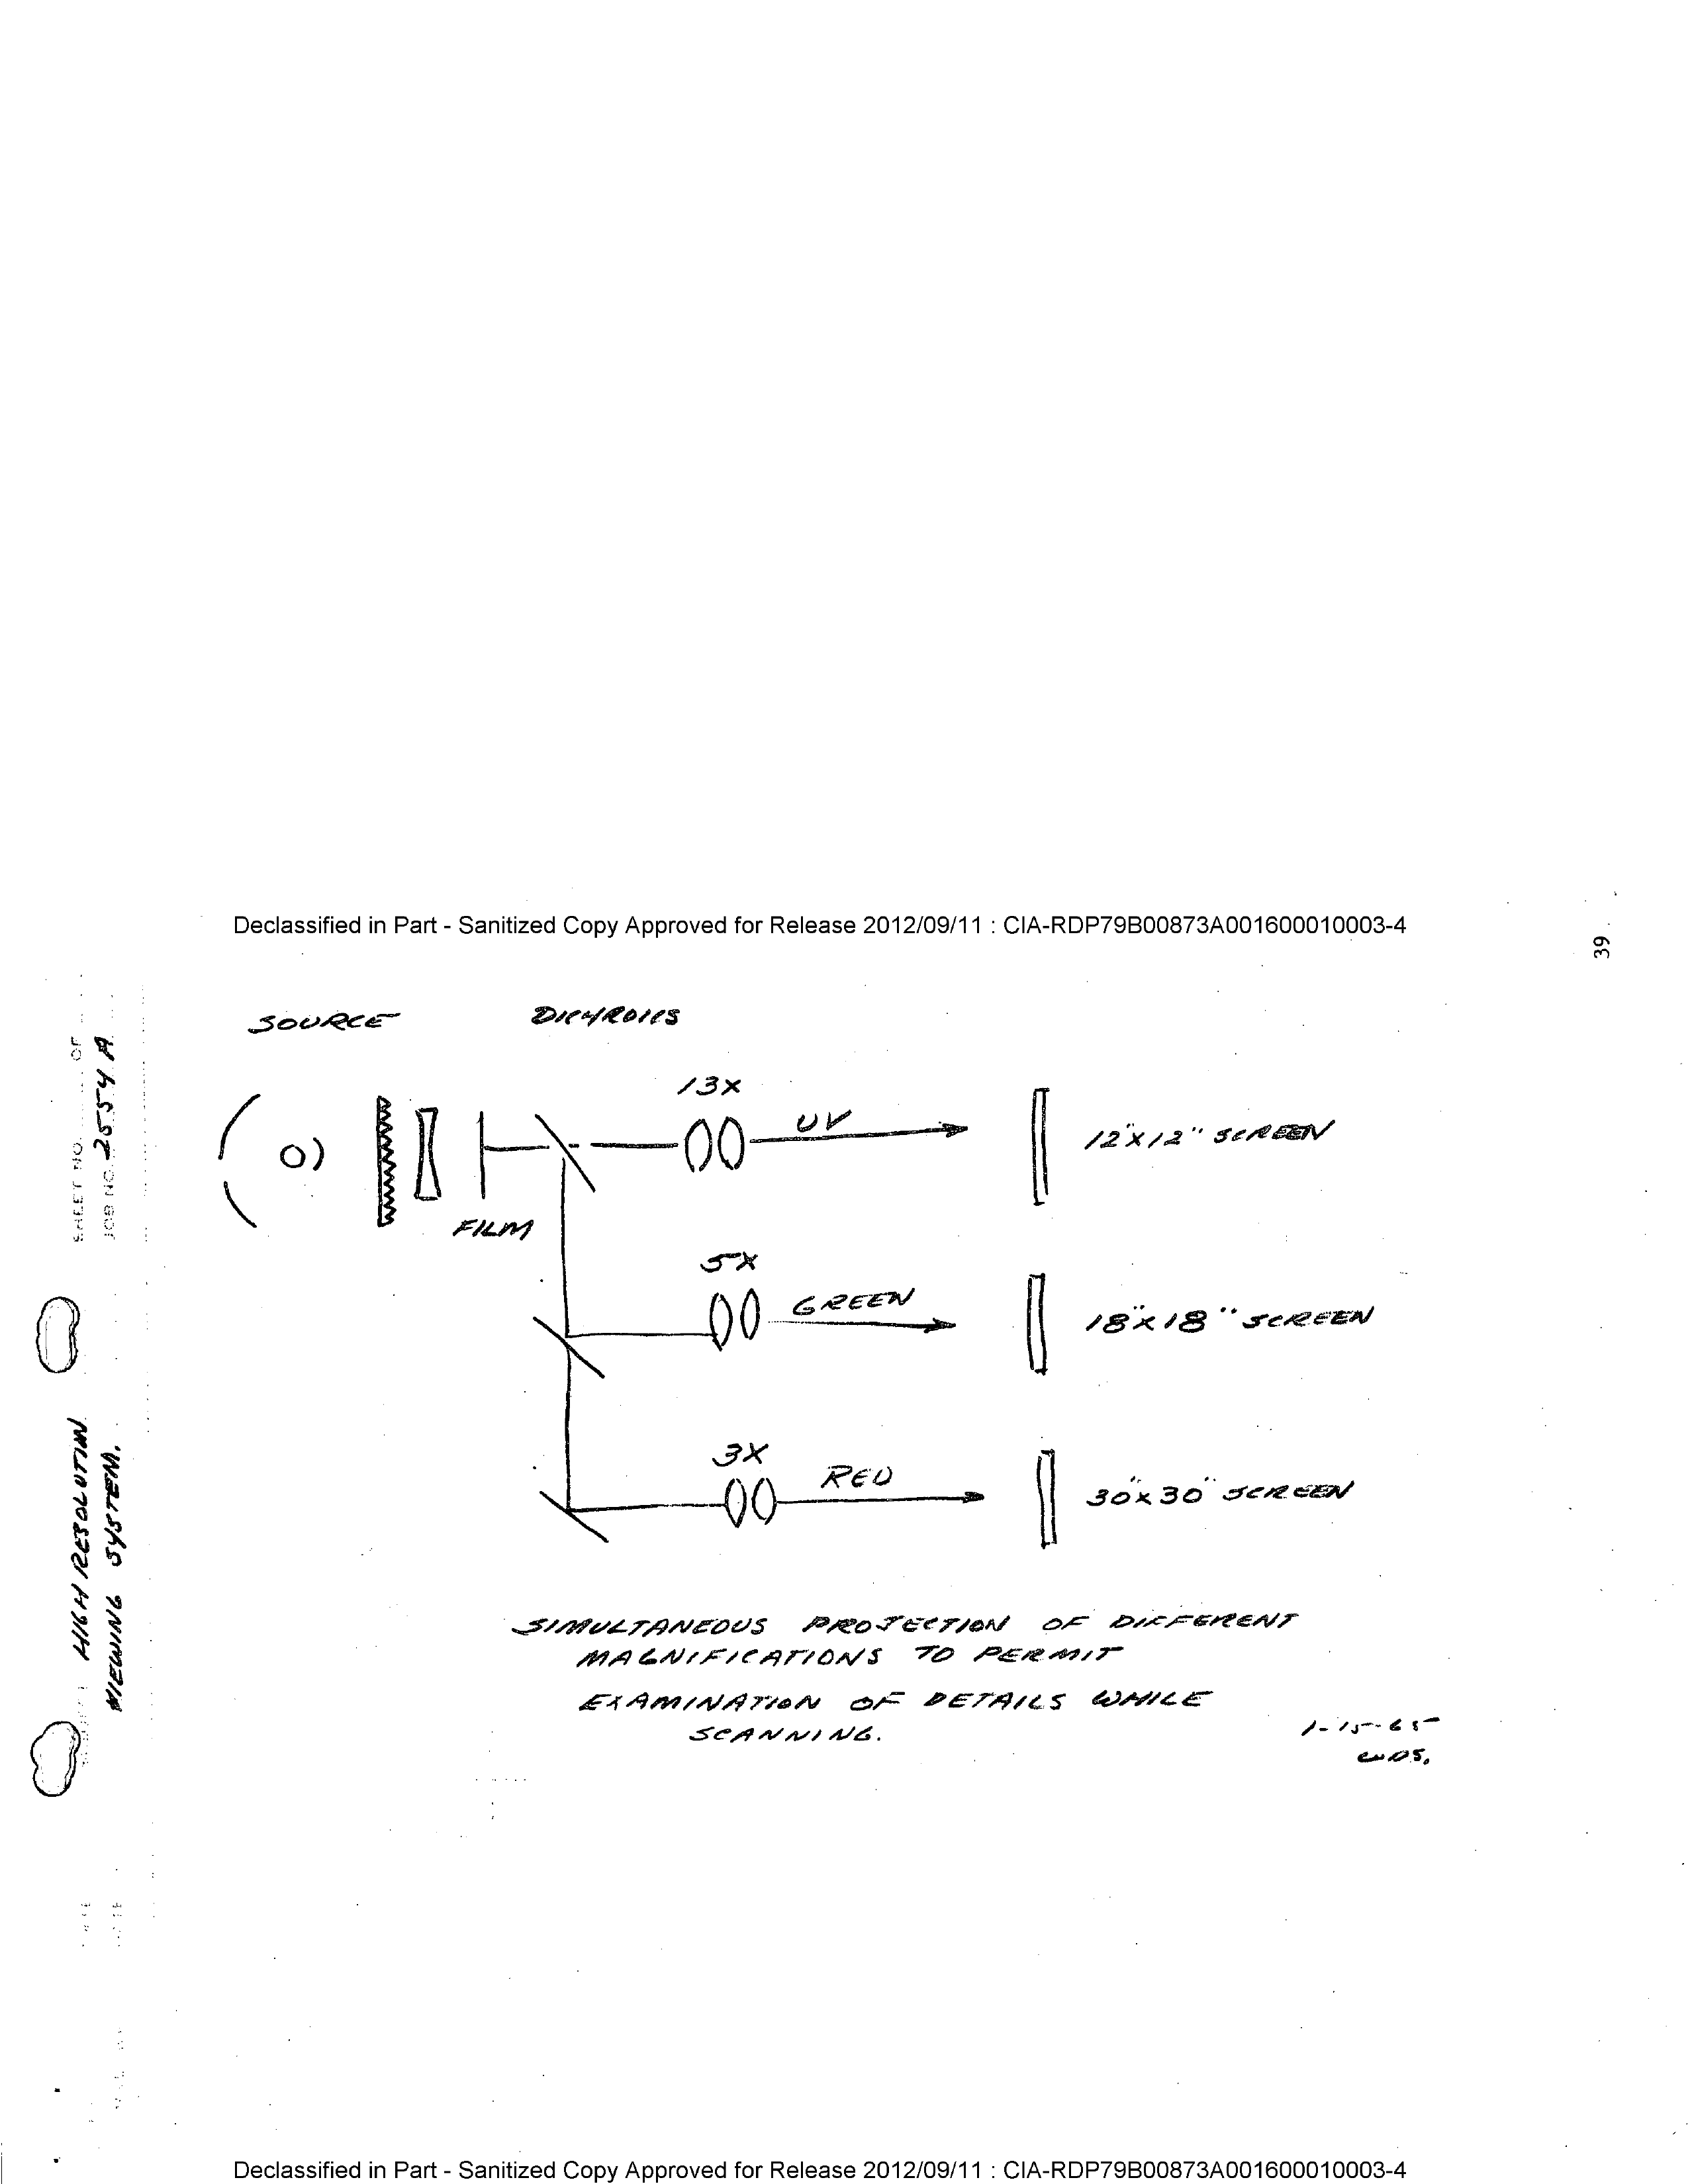 Declassified in Part - Sanitized Copy Approved for Release 2012/09/11 : CIA-RDP79B00873A001600010003-4
39
SHEET NO. OF
JOB NO. 2554 A
HIGH RESOLUTION
VIEWING SYSTEM.
SOURCE DICHROICS
13X
UV
12"X12" SCREEN
FILM
5X
GREEN
18"X18" SCREEN
3X
RED
30"X30" SCREEN
SIMULTANEOUS PROJECTION OF DIFFERENT
MAGNIFICATIONS TO PERMIT
EXAMINATION OF DETAILS WHILE
SCANNING.
1-15-65
Declassified in Part - Sanitized Copy Approved for Release 2012/09/11 : CIA-RDP79B00873A001600010003-4